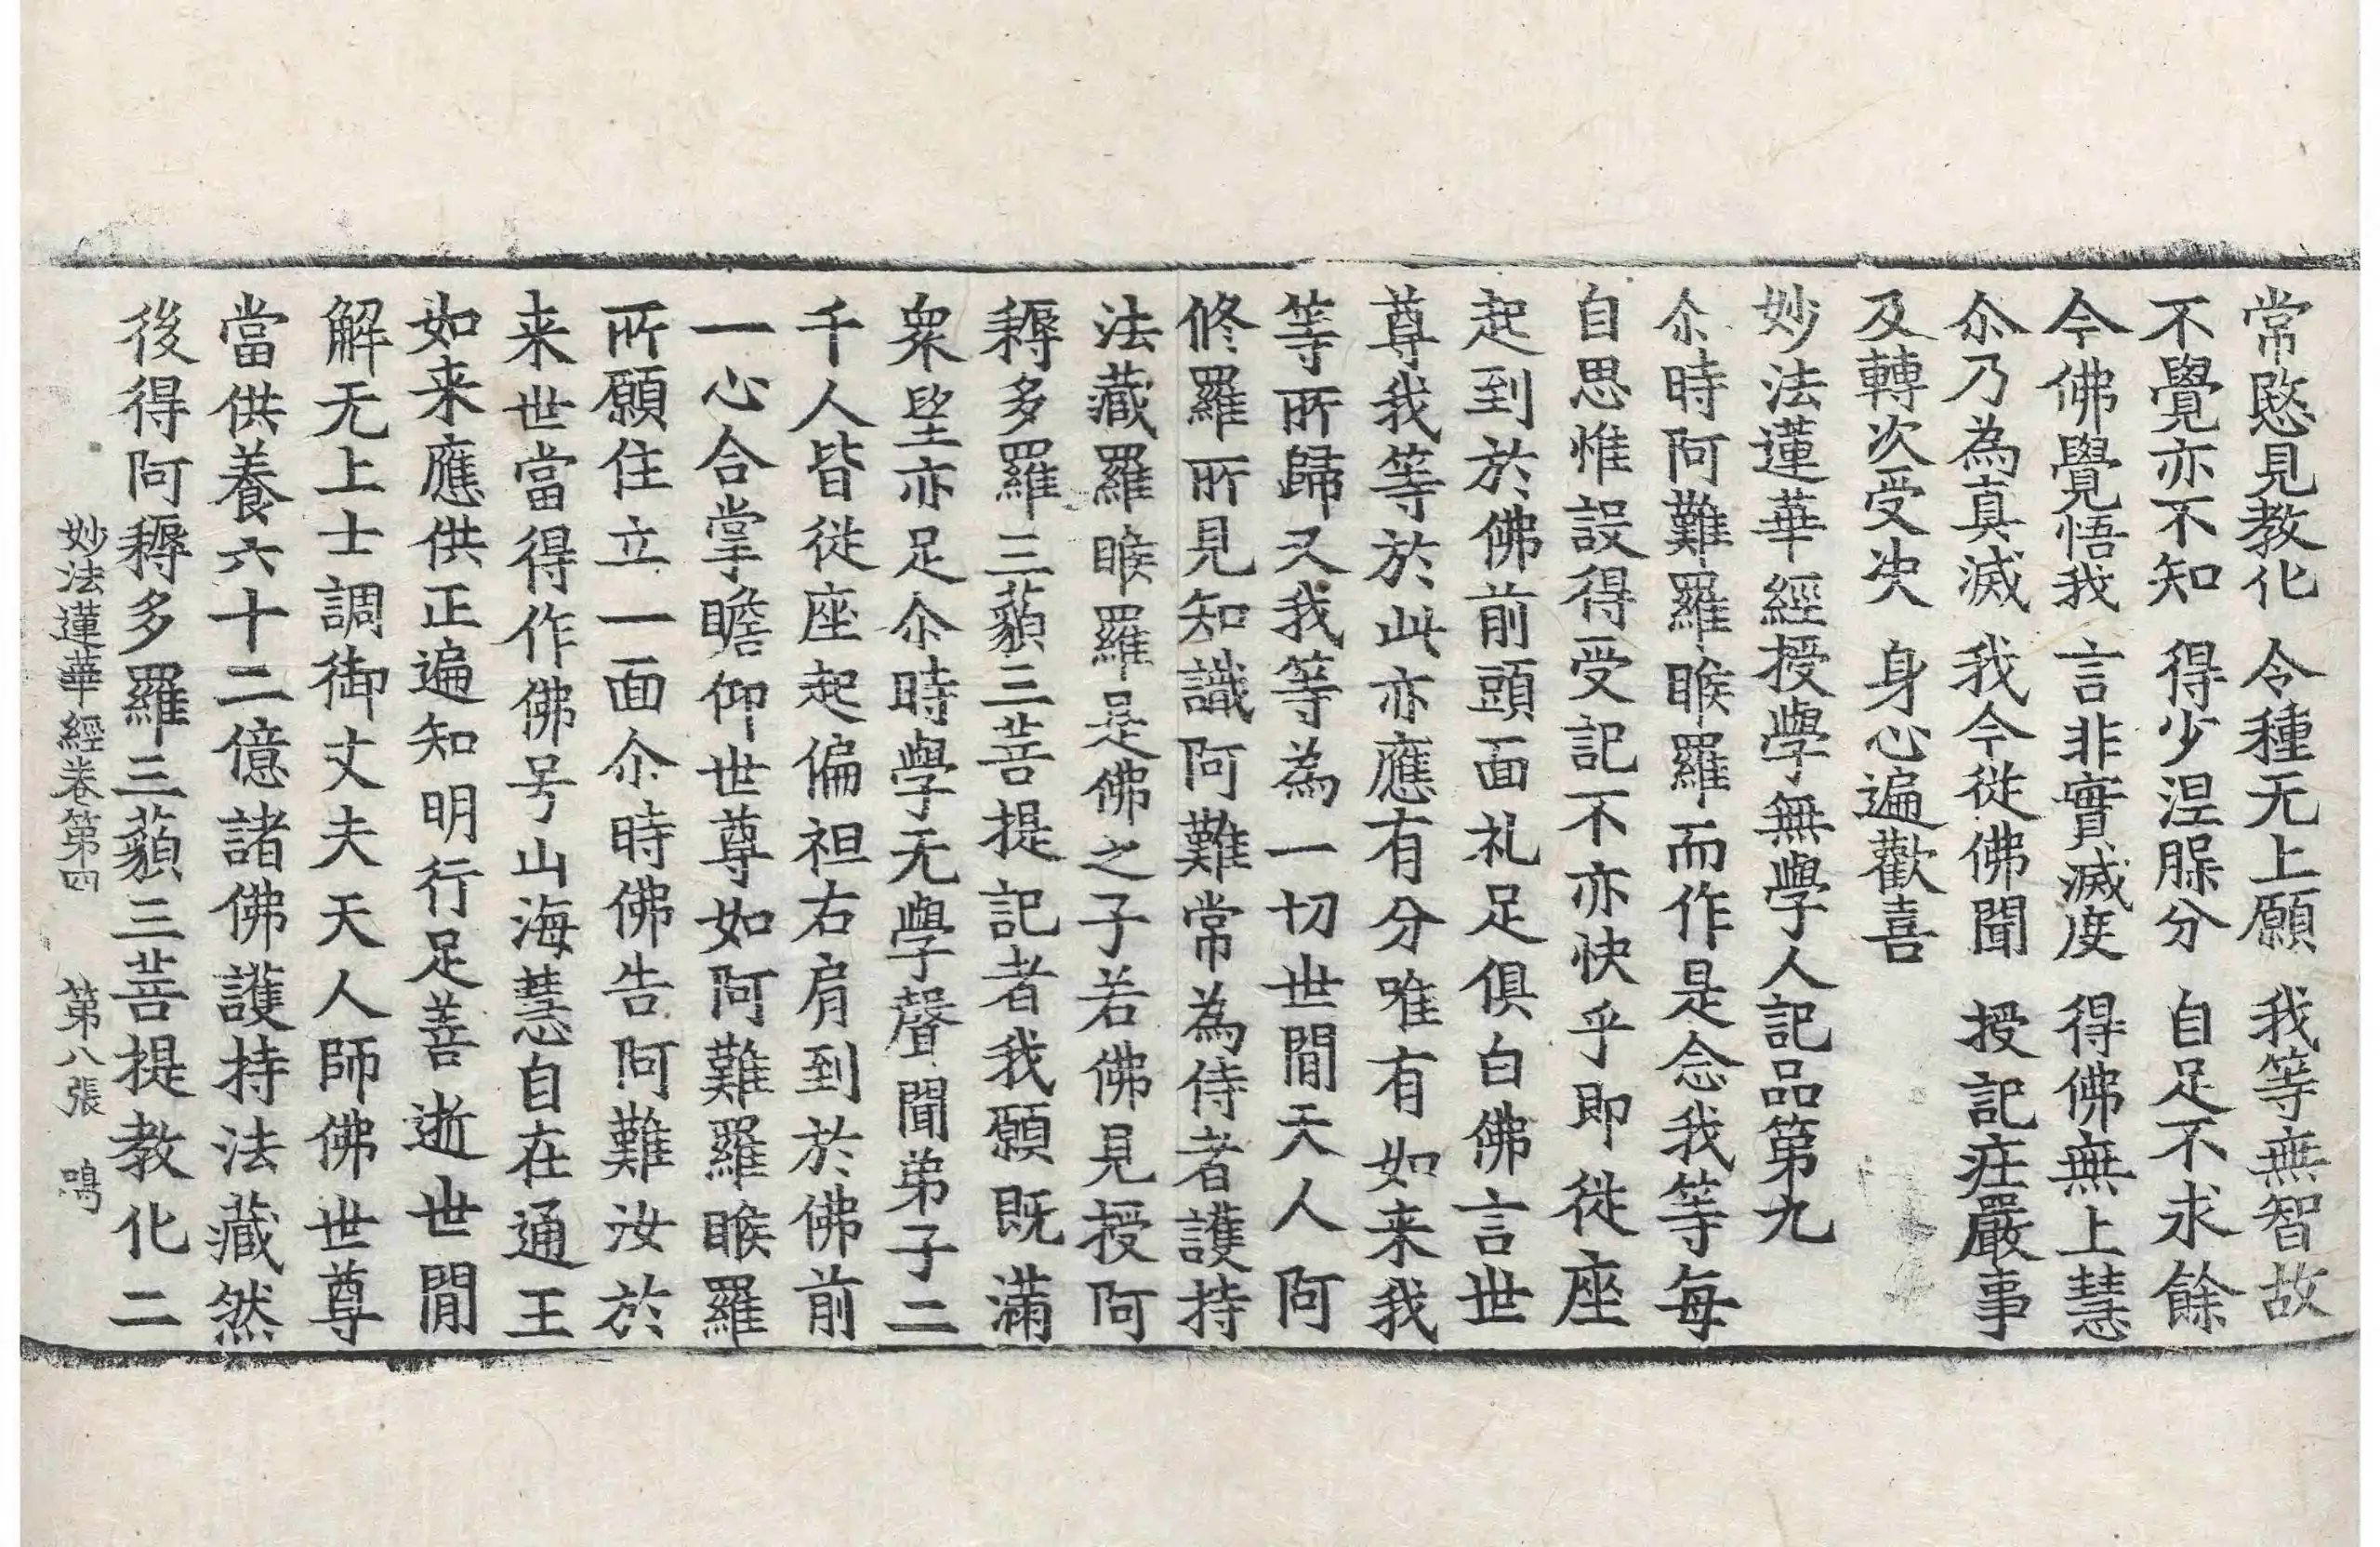 常愍見教化　令種无上願　我等無智故
不覺亦不知　得少涅槃分　自足不求餘
今佛覺悟我　言非實滅度　得佛無上慧
尒乃為真滅　我今從佛聞　授記庄嚴事
及轉次受决　身心遍歡喜
妙法蓮華經授學無學人記品第九
尒時阿難羅睺羅而作是念我等每
自思惟設得受記不亦快乎即從座
起到於佛前頭面礼足俱白佛言世
尊我等於此亦應有分唯有如来我
等所歸又我等為一切世間天人阿
修羅所見知識阿難常為侍者護持
法藏羅睺羅是佛之子若佛見授阿
耨多羅三藐三菩提記者我願既滿
衆望亦足尒時學无學聲聞弟子二
千人皆從座起偏袒右肩到於佛前
一心合掌瞻仰世尊如阿難羅睺羅
所願住立一面尒時佛告阿難汝於
来世當得作佛号山海慧自在通王
如来應供正遍知明行足善逝世間
解无上士調御丈夫天人師佛世尊
當供養六十二億諸佛護持法藏然
後得阿耨多羅三藐三菩提教化二
妙法蓮華經卷第四　第八張　鳴